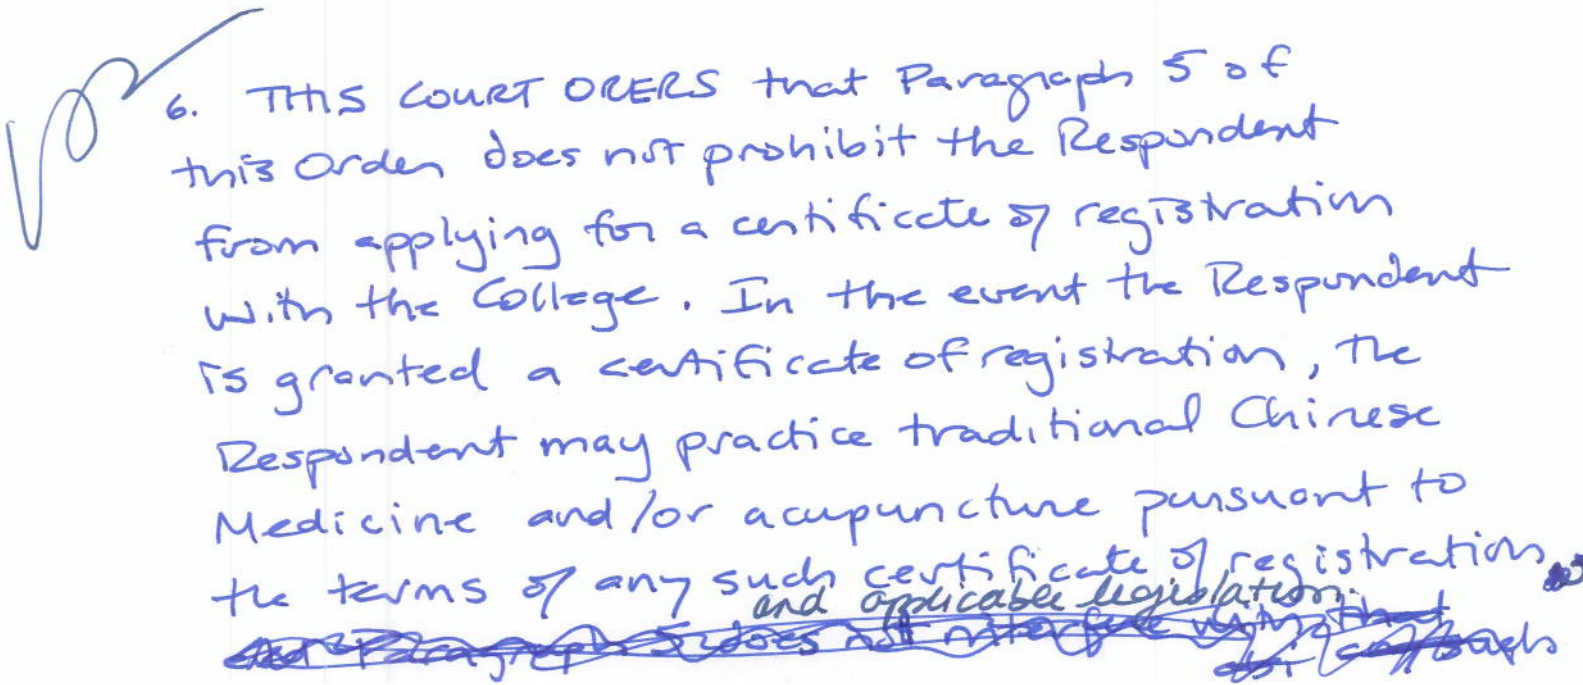 6. THIS COURT ORERS that Paragraph 5 of
this Order does not prohibit the Respondent
from applying for a certificate of registration
with the College. In the event the Respondent
is granted a certificate of registration, the
Respondent may practice traditional Chinese
Medicine and/or acupuncture pursuant to
the terms of any such certificate of registration
and applicable legislation.
and Paragraph 5 does not interfere with that